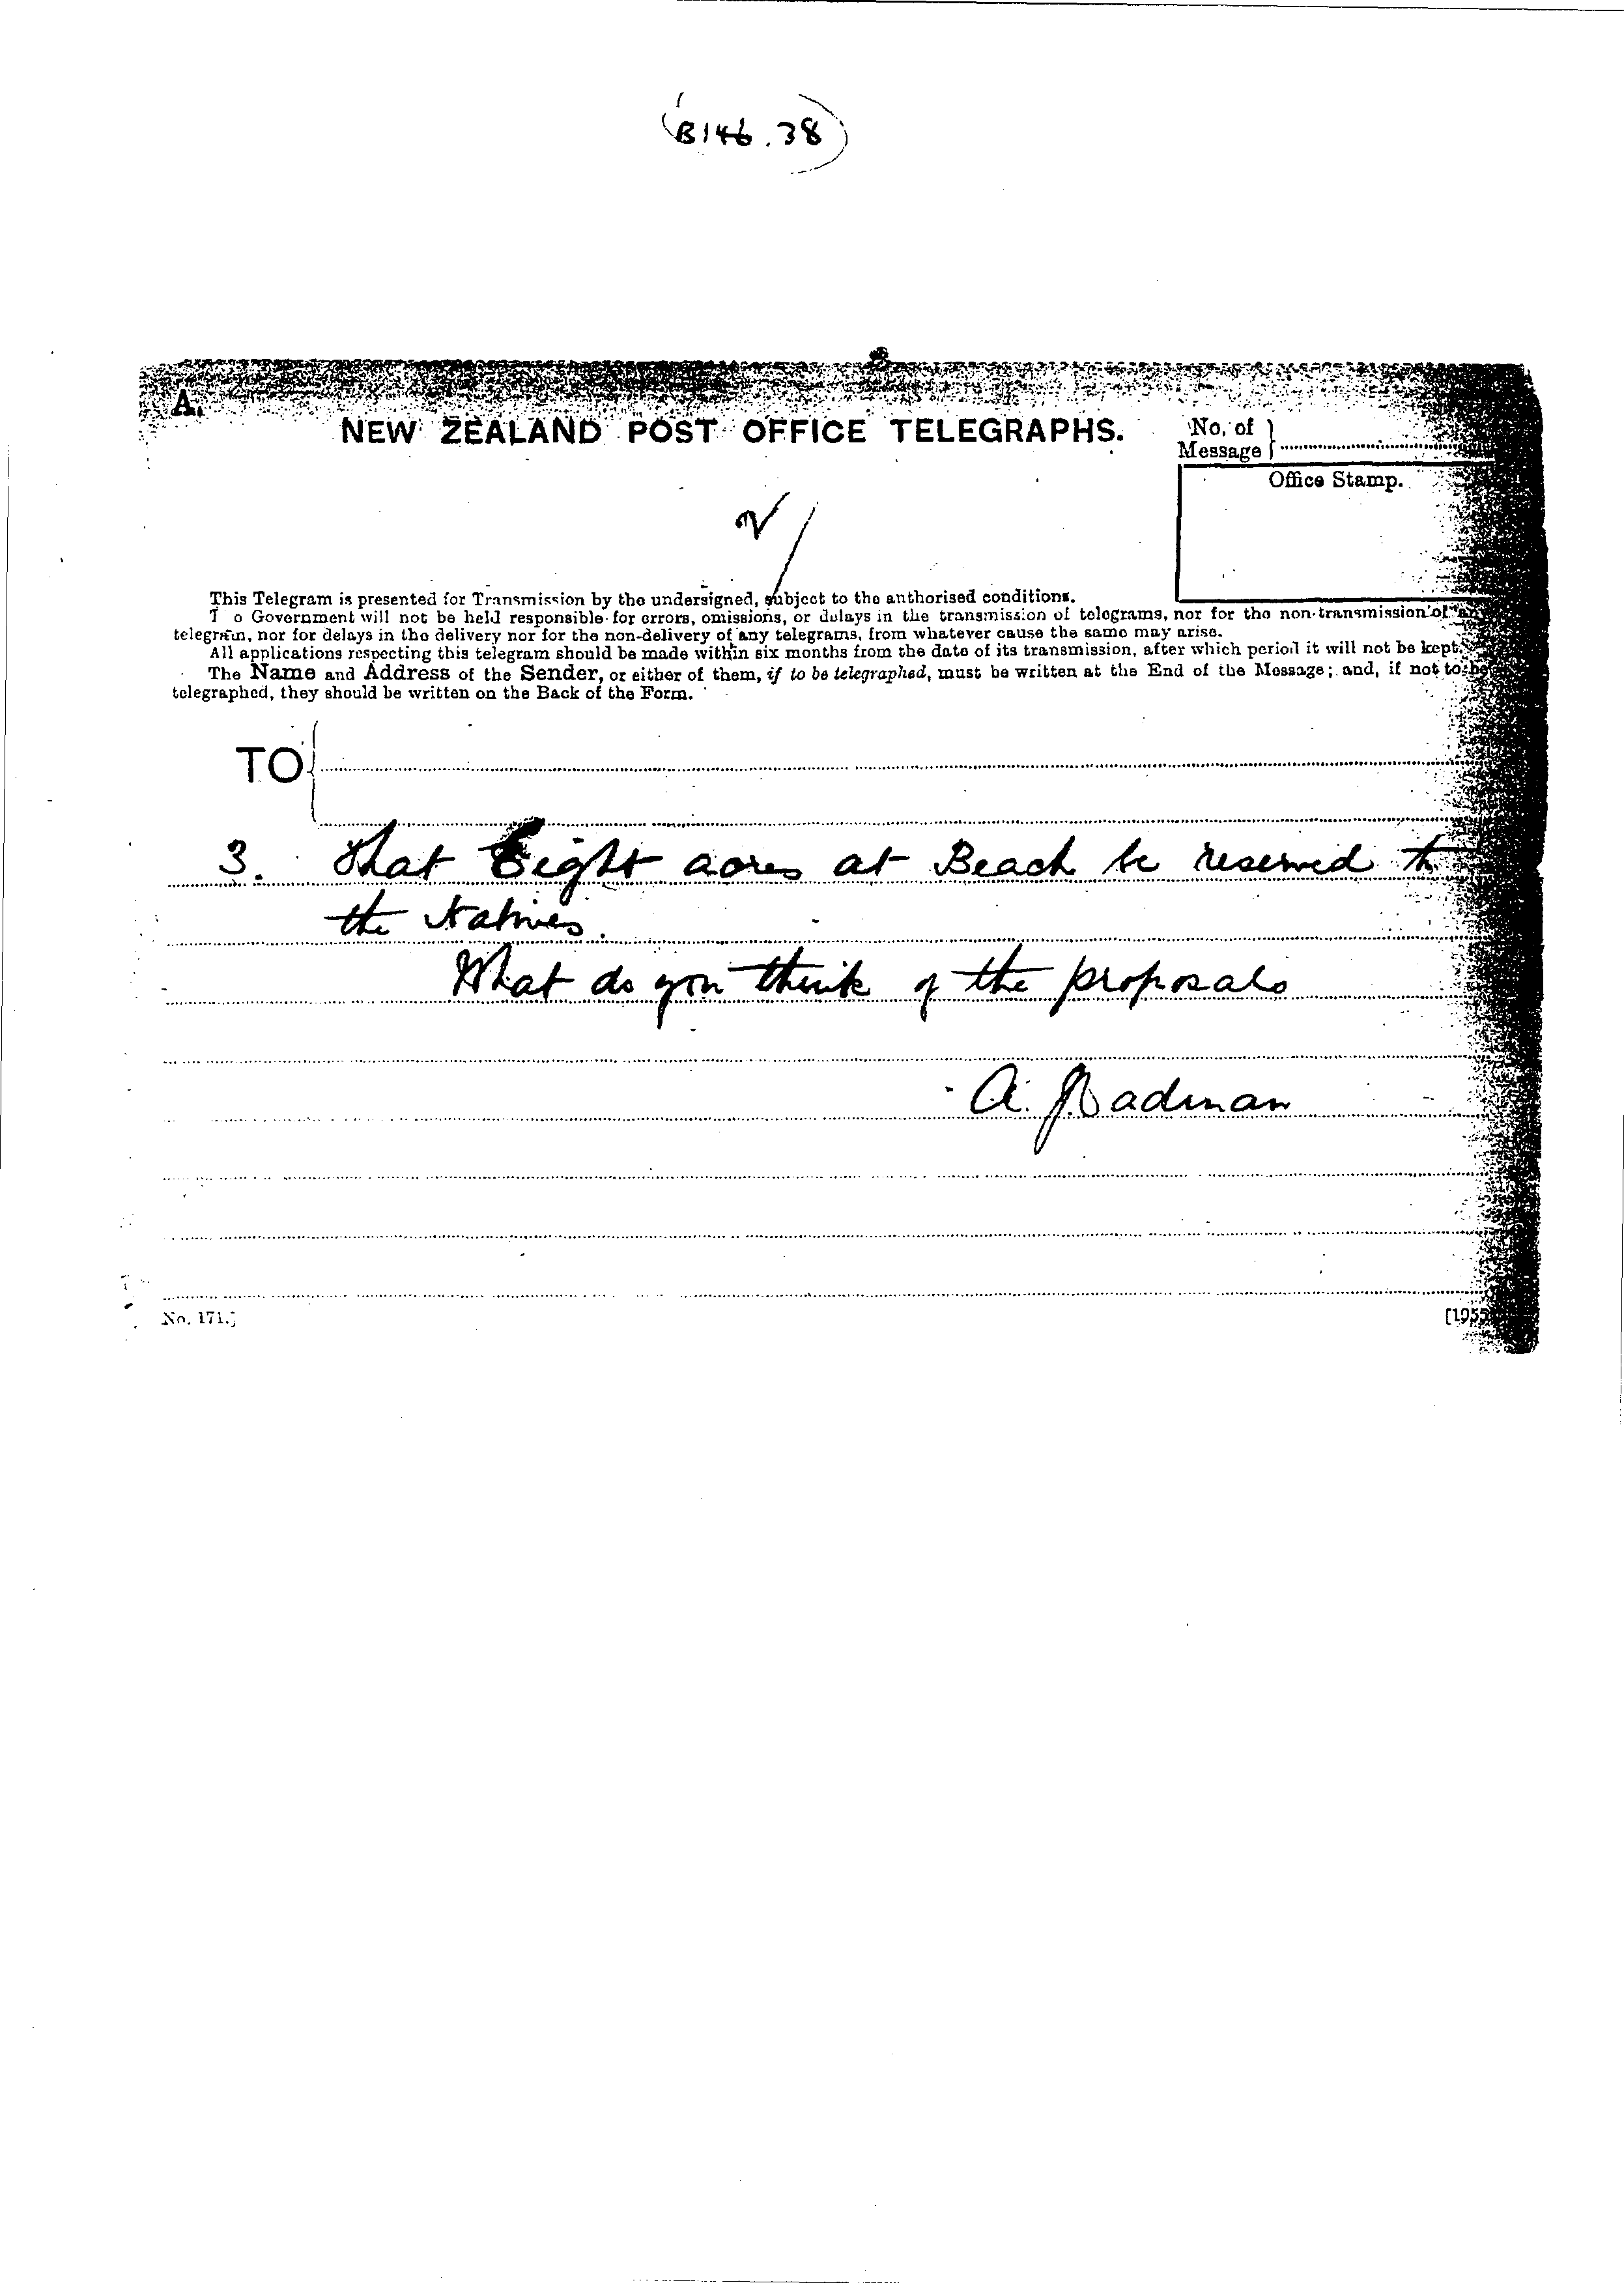 B146.38
A.
NEW ZEALAND POST OFFICE TELEGRAPHS.
No. of
Message
Office Stamp.
This Telegram is presented for Transmission by the undersigned, subject to the authorised conditions.
T o Government will not be held responsible for errors, omissions, or delays in the transmission of telegrams, nor for the non-transmission of any
telegram, nor for delays in the delivery nor for the non-delivery of any telegrams, from whatever cause the same may arise.
All applications respecting this telegram should be made within six months from the date of its transmission, after which period it will not be kept.
The Name and Address of the Sender, or either of them, if to be telegraphed, must be written at the End of the Message; and, if not to be
telegraphed, they should be written on the Back of the Form.
TO
3. That Eight acres at Beach be reserved to
the Natives.
What do you think of the proposals
A. Madman
No. 171.]
[195